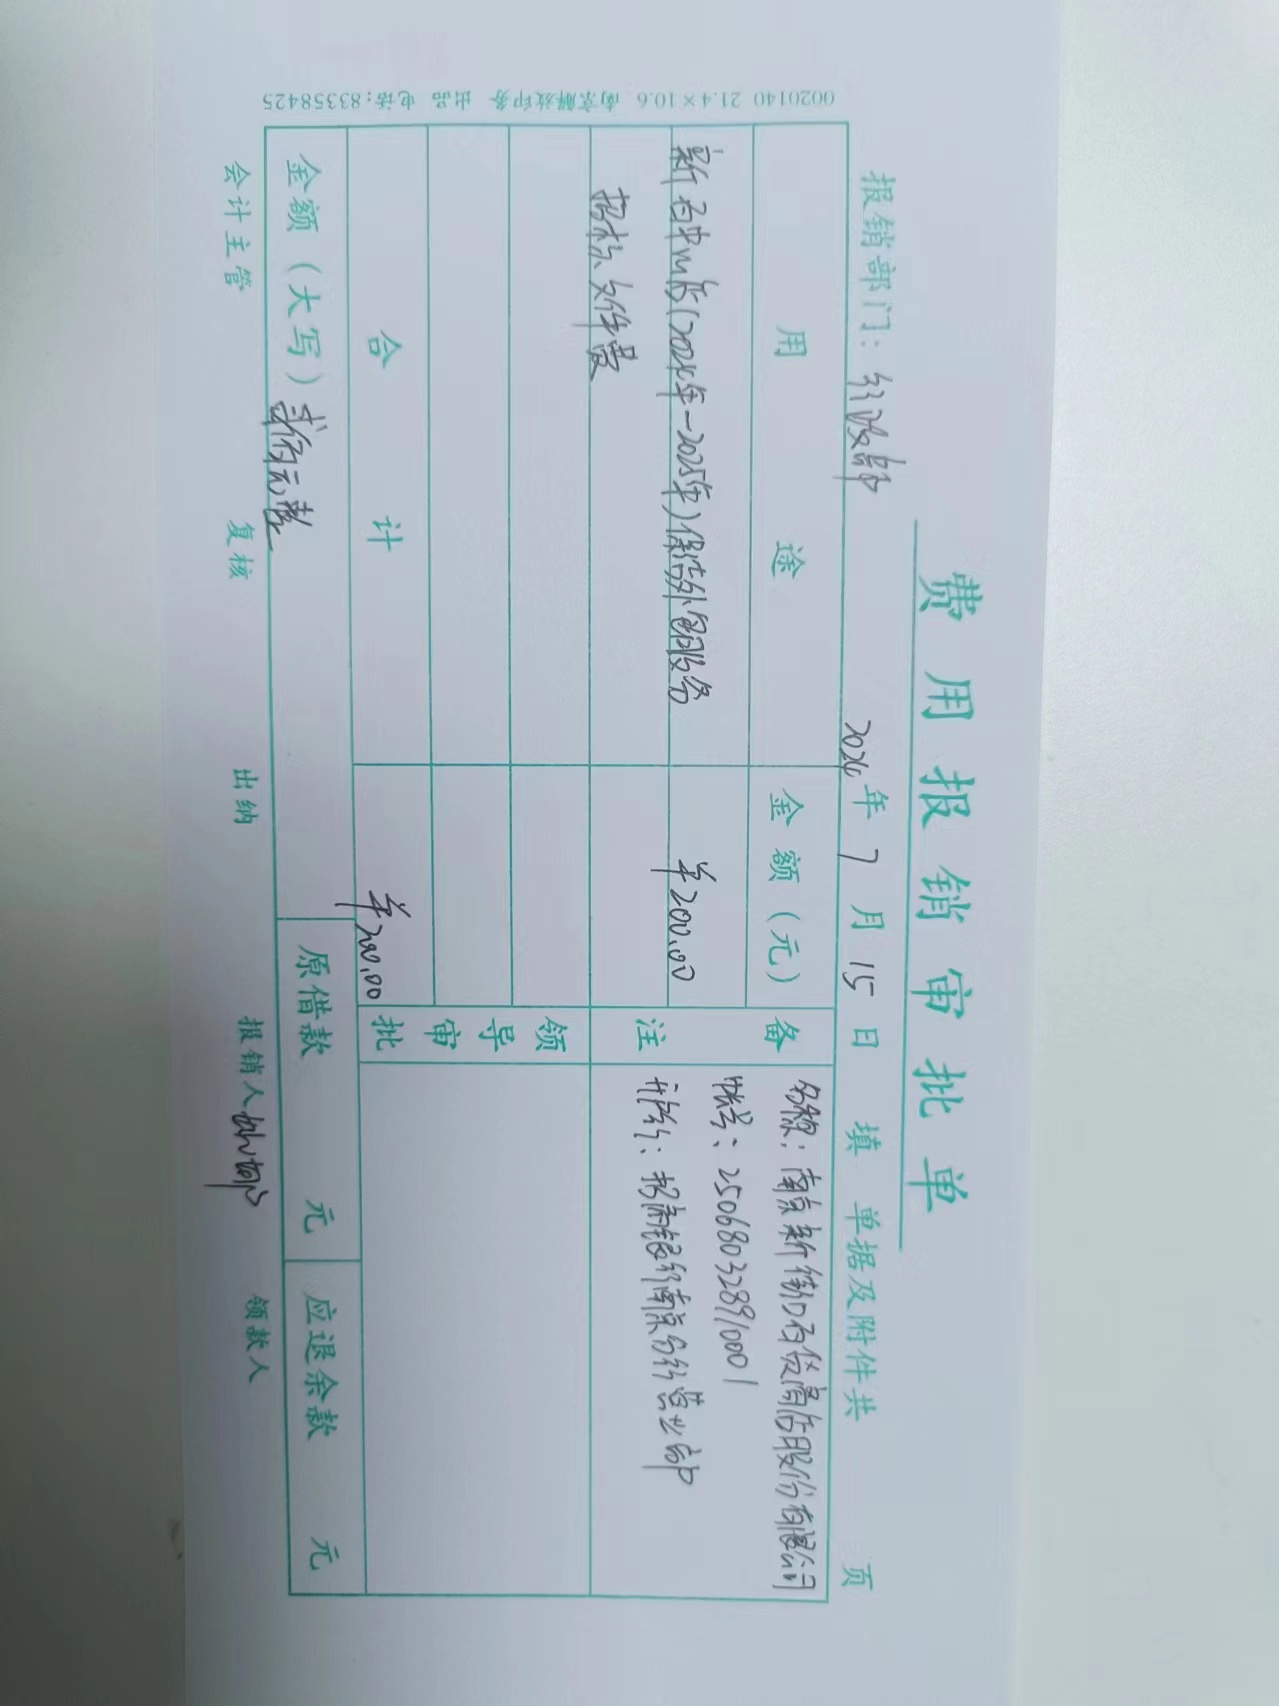 费用报销审批单
报销部门：行政部 2024年7月15日 填 单据及附件共 页
用途 金额(元) 备注
新百中山店(2024年-2025年)保洁外包服务 ￥200.00
招标文件费
名称：南京新街口百货商店股份有限公司
帐号：250680328910001
开户行：招商银行南京分行营业部
领导审批
合计 ￥200.00
金额(大写)贰佰元整 原借款 元 应退余款 元
会计主管 复核 出纳 报销人 领款人
0020140 21.4×10.6 南京解放印务 出品 电话:83358425